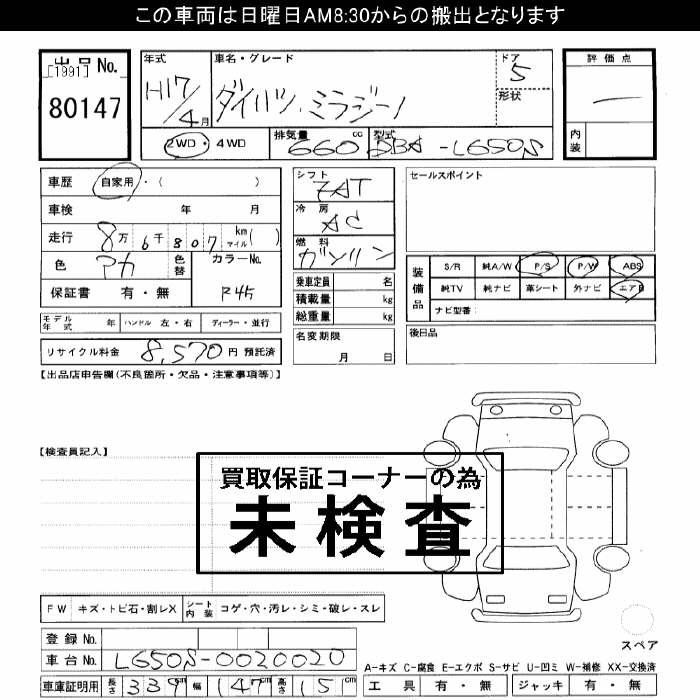 この車両は日曜日AM8:30からの搬出となります
出品No.
[1991]
80147
年式 H17/4月
車名・グレード ダイハツ.ミラジーノ
ドア 5
形状
評価点
—
内装
2WD・4WD
排気量 660 cc
型式 DBA-L650S
車歴 自家用・( )
車検 年 月
走行 8万6千807 km マイル( )
色 アカ 色替 カラーNo. R45
保証書 有・無
モデル年式 年 ハンドル 左・右 ディーラー・並行
リサイクル料金 8,570円 預託済
シフト 7AT
冷房 AC
燃料 ガソリン
乗車定員 名
積載量 kg
総重量 kg
名変期限
月 日
セールスポイント
装備品
S/R 純A/W P/S P/W ABS
純TV 純ナビ 革シート 外ナビ エアB
ナビ型番:
後日品
【出品店申告欄(不良箇所・欠品・注意事項等)】
【検査員記入】
買取保証コーナーの為
未検査
FW キズ・トビ石・割レX シート内装 コゲ・穴・汚レ・シミ・破レ・スレ
登録No.
車台No. L650S-0020020
車庫証明用 長さ 339cm 幅 147cm 高さ 15cm
スペア
A-キズ C-腐食 E-エクボ S-サビ U-凹ミ W-補修 XX-交換済
工具 有・無 ジャッキ 有・無